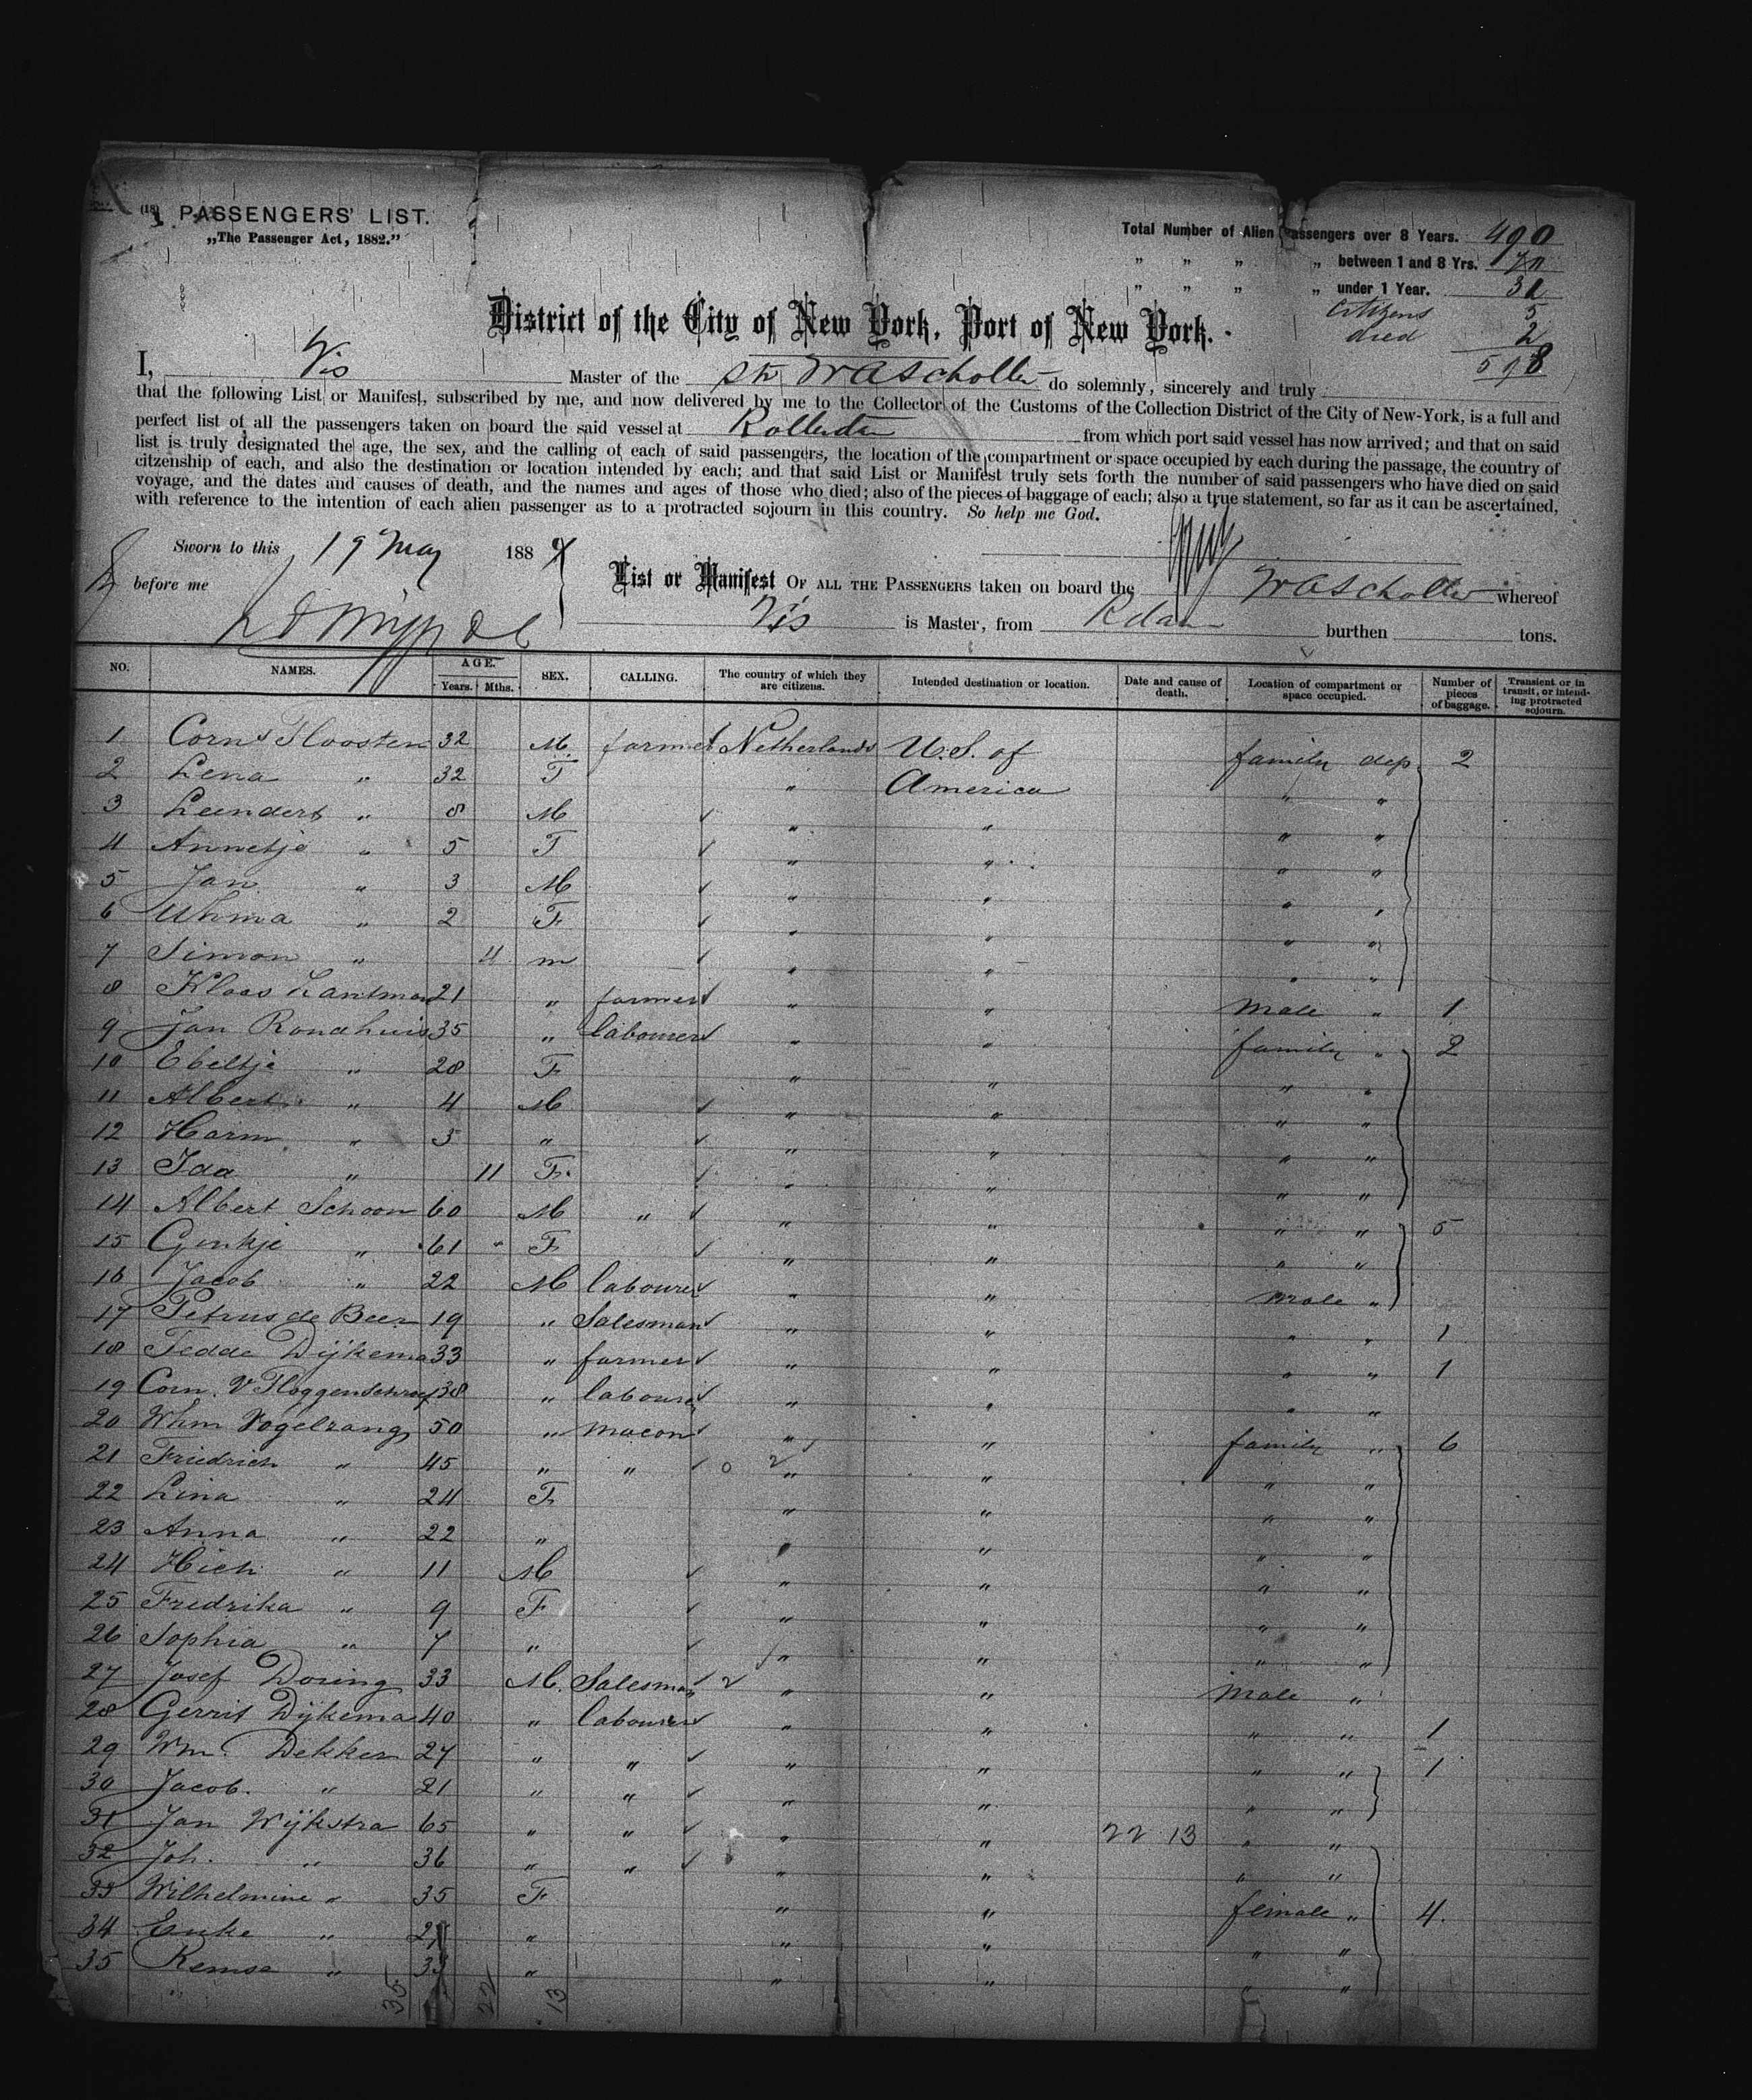 (18) PASSENGERS' LIST.
„The Passenger Act, 1882.”
Total Number of Alien Passengers over 8 Years. 490
„ „ „ „ between 1 and 8 Yrs.
„ „ „ „ under 1 Year.
citizens 5
died 2
598
District of the City of New York, Port of New York.
I, Vis Master of the W A Scholten do solemnly, sincerely and truly
that the following List or Manifest, subscribed by me, and now delivered by me to the Collector of the Customs of the Collection District of the City of New-York, is a full and
perfect list of all the passengers taken on board the said vessel at Rotterdam from which port said vessel has now arrived; and that on said
list is truly designated the age, the sex, and the calling of each of said passengers, the location of the compartment or space occupied by each during the passage, the country of
citzenship of each, and also the destination or location intended by each; and that said List or Manifest truly sets forth the number of said passengers who have died on said
voyage, and the dates and causes of death, and the names and ages of those who died; also of the pieces of baggage of each; also a true statement, so far as it can be ascertained,
with reference to the intention of each alien passenger as to a protracted sojourn in this country. So help me God.
Sworn to this 19 May 188
before me
List or Manifest OF ALL THE PASSENGERS taken on board the W A Scholten whereof
Vis is Master, from Rdam burthen tons.
NO. NAMES. AGE. Years. Mths. SEX. CALLING. The country of which they are citizens. Intended destination or location. Date and cause of death. Location of compartment or space occupied. Number of pieces of baggage. Transient or in transit, or intending protracted sojourn.
1 Corns 32 M. farmer Netherlands U.S. of family dep. 2
2 Lena „ 32 F „ America „ „
3 Leendert „ 8 M „ „ „ „
4 Annetje „ 5 F „ „ „ „
5 Jan „ 3 M „ „ „ „
6 „ 2 F „ „ „ „
7 Simon „ m „ „ „ „
8 Klaas Lantman 21 „ farmer „ „ male „ 1
9 Jan Rondhuis 35 „ labourer „ „ family „ 2
10 Ebeltje „ 28 F „ „ „ „
11 Albert „ 4 M „ „ „ „
12 Harm „ 3 „ „ „ „ „
13 Ida „ 11 F. „ „ „ „
14 Albert Schoon 60 M „ „ „ „ „ 5
15 „ 61 F „ „ „ „
16 Jacob „ 22 M labourer „ „ male „
17 Petrus de Beer 19 „ Salesman „ „ „ „ 1
18 Tedde Dijkema 33 „ farmer „ „ „ „ 1
19 Corn. V 38 „ labourer „ „ „ „
20 Whm Vogelzang 50 „ macon „ „ family „ 6
21 Friedrich „ 45 „ „ „ „ „ „
22 Lina „ 24 F „ „ „ „
23 Anna „ 22 „ „ „ „ „
24 „ 11 M „ „ „ „
25 Fredrika „ 9 F „ „ „ „
26 Sophia „ 7 „ „ „ „ „
27 Josef Doring 33 M. Salesman „ „ male „
28 Gerrit Dijkema 40 „ labourer „ „ „ „ 1
29 Wm. Dekker 27 „ „ „ „ „ „ 1
30 Jacob. „ 21 „ „ „ „ „ „
31 Jan Wijkstra 65 „ „ „ „ 22 13 „ „
32 Joh. „ 36 „ „ „ „ „ „
33 Wilhelmine „ 35 F „ „ female „ 4.
34 „ „ „ „ „ „
35 Remse „ „ „ „ „ „
35 22 13